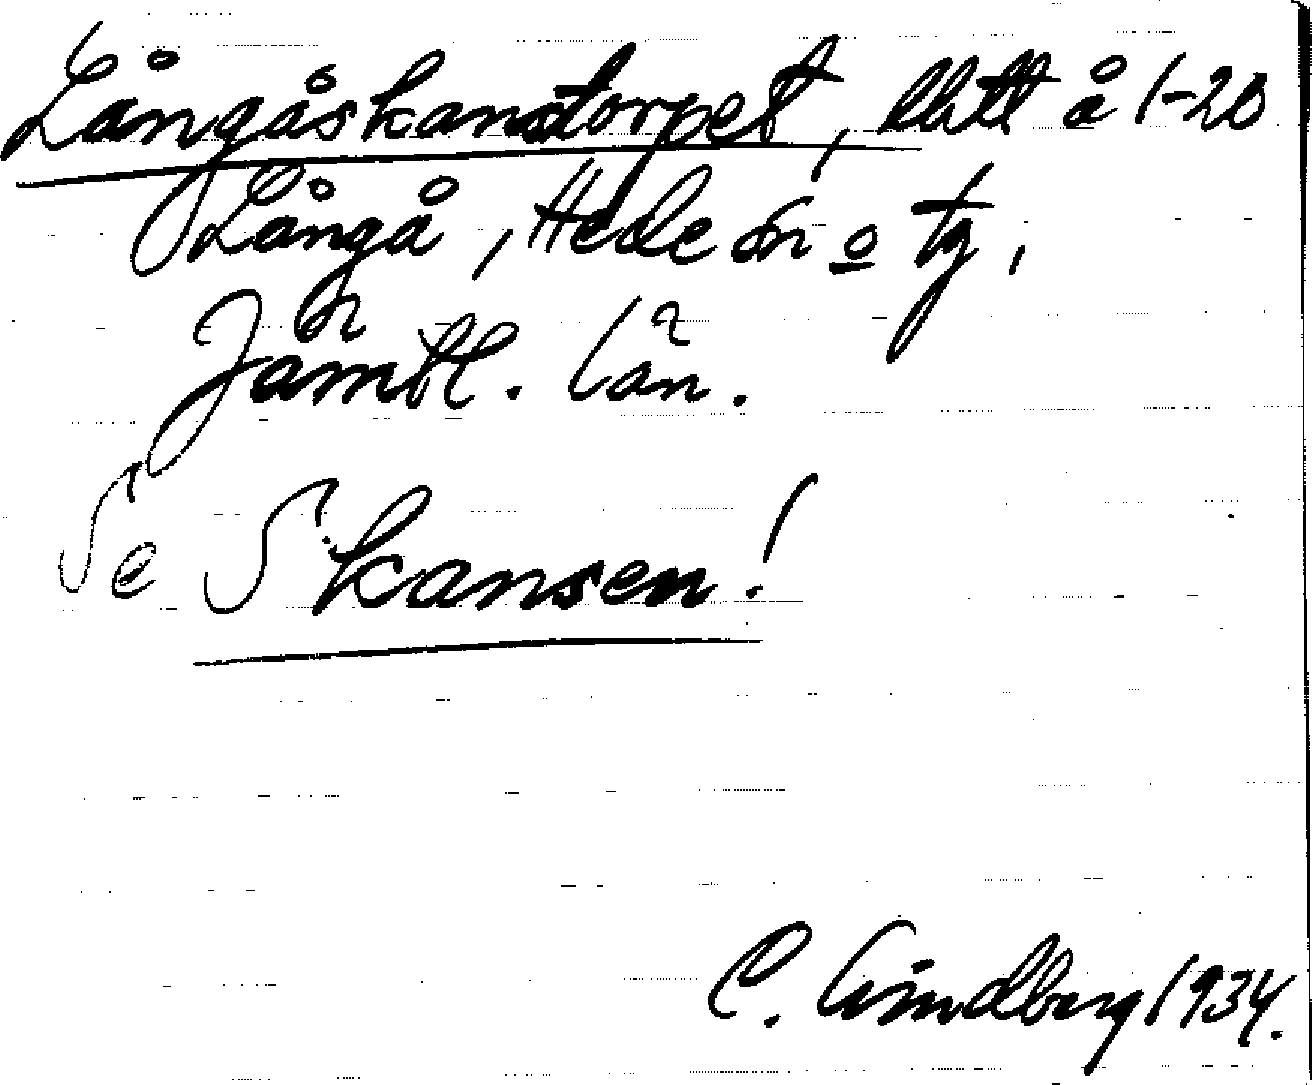 Långåskanstorpet, lhtt å 1-20
Långå, Hede sn o tg,
Jämtl. län.
Se Skansen!
C. Lindberg 1934.